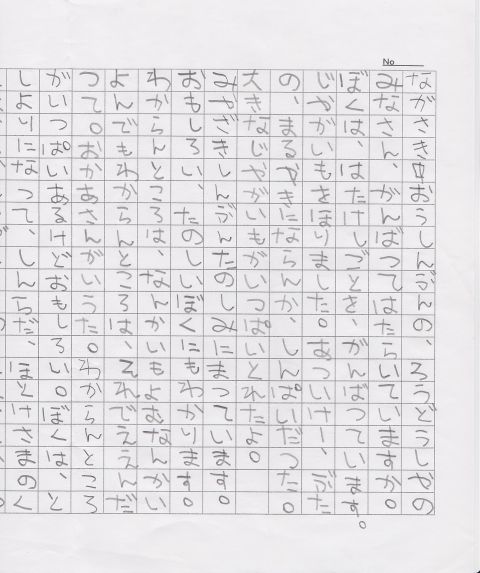 ながさき中おうしんぶんの、いろどうしやの
みなさん、がんばつてはたらいていますか。
ぼくは、たけしごときがばつています。
じやがいもきほりました。いけーぶた
の、まるやきになりました、しんぱいだつた。
大きなじやがいもがいつぱいとれたよ。
みやざきしんぶんたのしみにまつています。
おもしろい、たのしいぼくにもわかります。
わからんところはないんかい、よむなんい。
よんでもわからんところは、それでええんだ
つて。おあさんがいうた。わからんところ
がいつぱいあるけどおもしろい。ぼくは、と
しよりになつて、しんらだ、ほとけさまのく
No